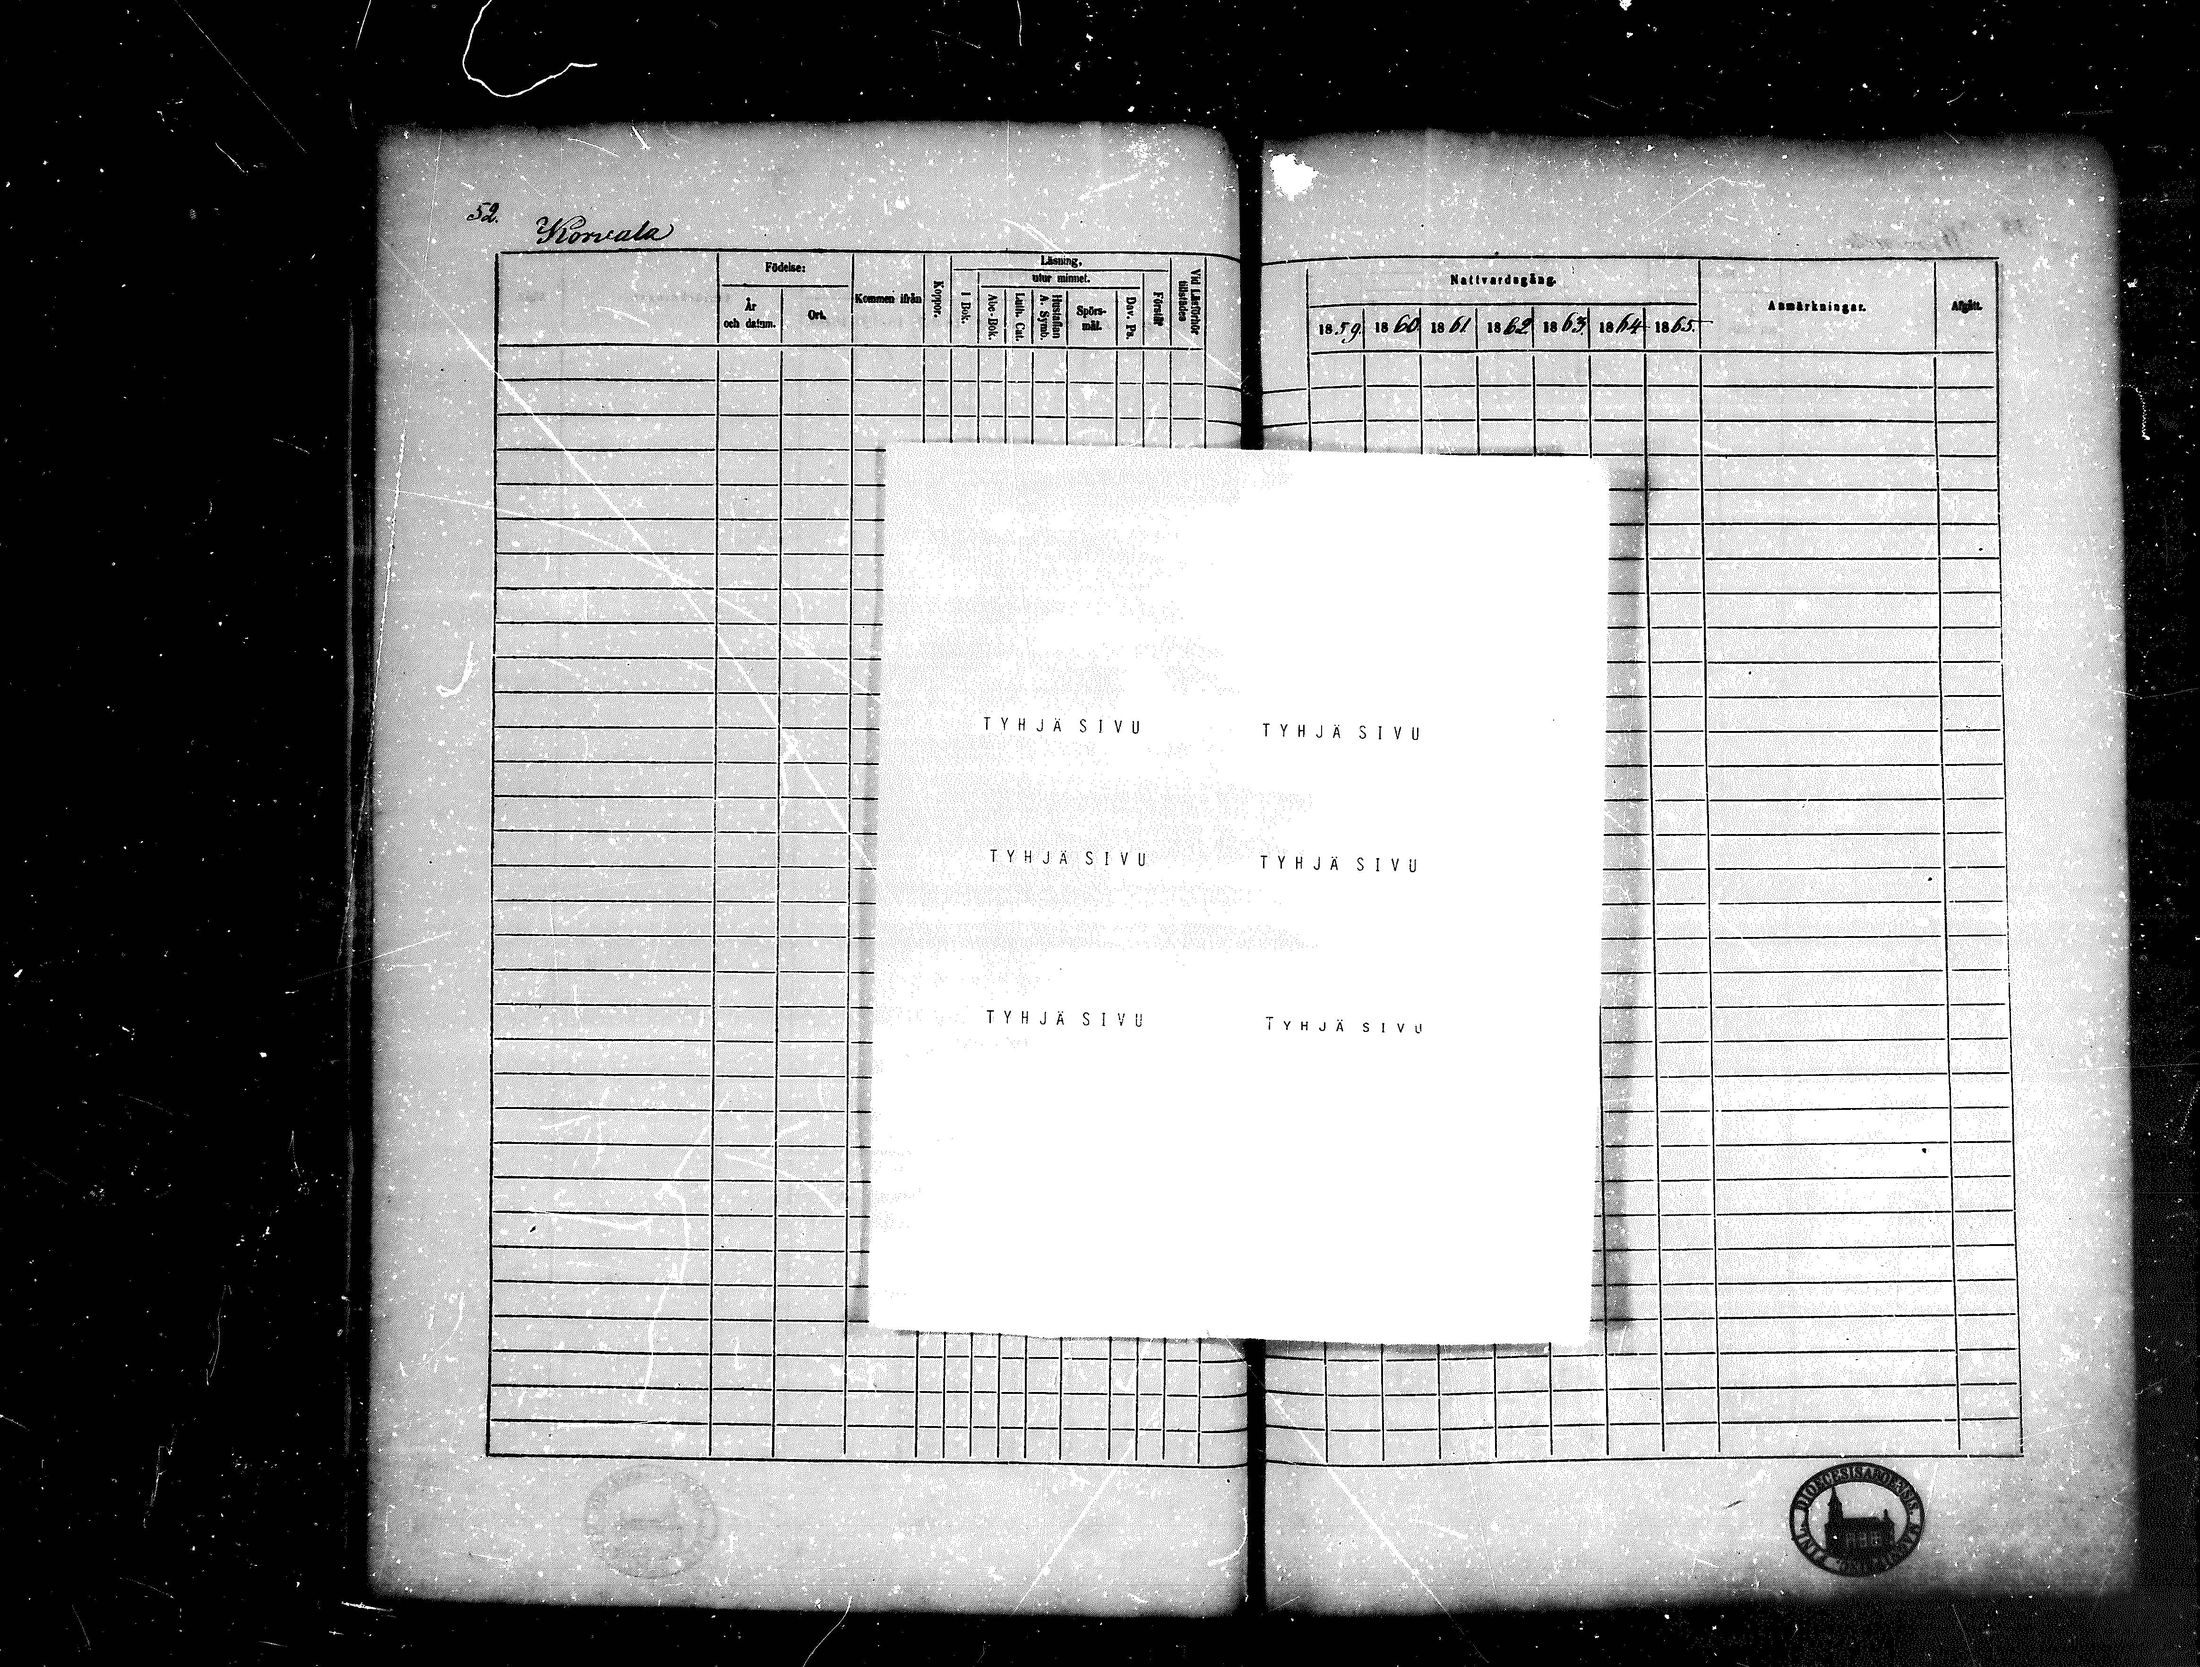 52.
Korvala
Födelse:
År
och datum.
Ort.
Kommen ifrån
Koppor.
Läsning,
utur minnet.
I Bok.
Abc-Bok.
Luth. Cat.
Hustaflan
A. Symb.
Spörs-
mål.
Dav. Ps.
Förstår
Vid Läsförhör
tillstädes
Nattvardsgång.
1859. 1860. 1861 1862 1863. 1864 1865.
Anmärkningar.
Afgått.
TYHJÄ SIVU TYHJÄ SIVU
TYHJÄ SIVU TYHJÄ SIVU
TYHJÄ SIVU TYHJÄ SIVU
DIOECESIS ABOENSIS.